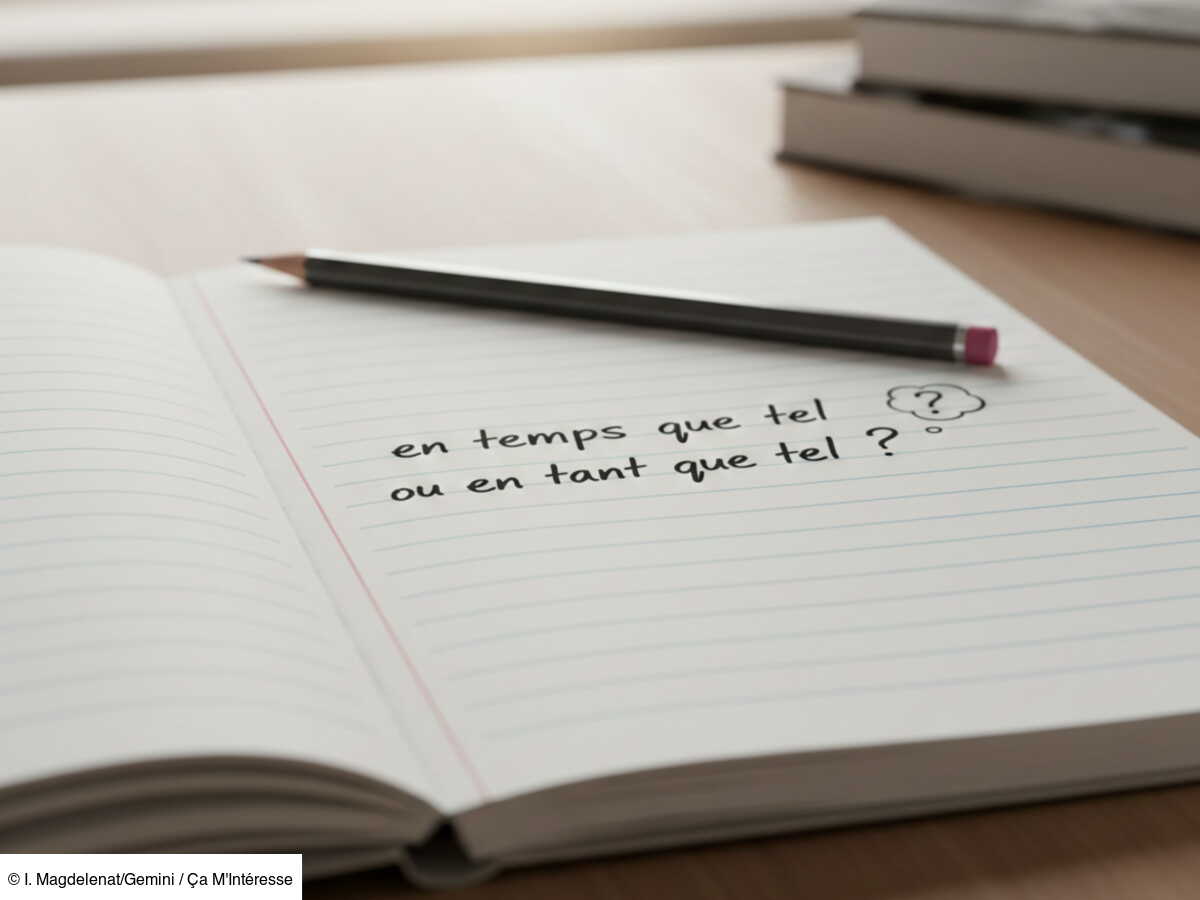 ?
en temps que tel
ou en tant que tel ?
© I. Magdelenat/Gemini / Ça M'Intéresse